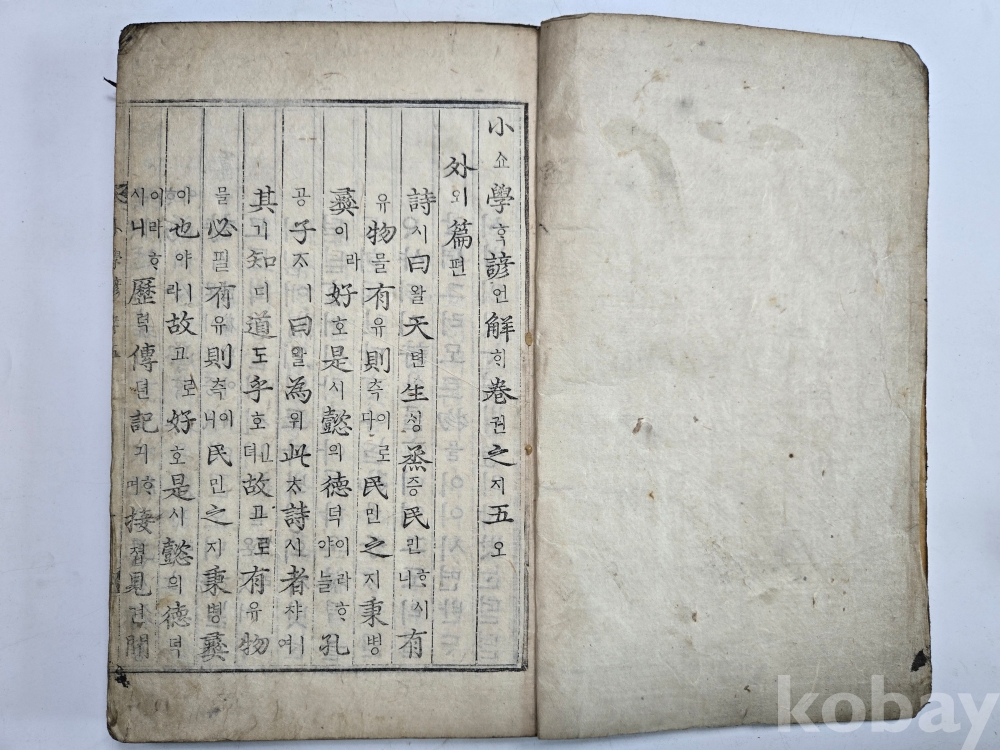 小쇼學ᄒᆞᆨ諺언解ᄒᆡ卷권之지五오
外외篇편
詩시曰왈天텬生ᄉᆡᆼ烝증民민ᄒᆞ시니有
유物물有유則측이로다民민之지秉병
彝이라好호是시懿의德덕이라ᄒᆞ야늘孔
공子ᄌᆞㅣ曰왈為위此ᄎᆞ詩시者쟈ㅣ여
其기知디道도乎호ㅣㄴ뎌故고로有유物
물必필有유則측이니民민之지秉병彝
이也야ㅣ라故고로好호是시懿의德덕
이라ᄒᆞ시니歷력傳뎐記긔ᄒᆞ며接졉見견聞
kobay